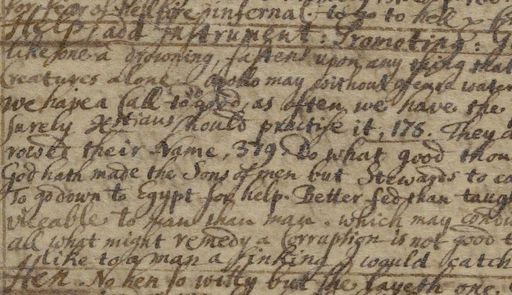 for fear of Hell fire infernal. to go to hell
Help, add Instrument: Promoting:
like one a drowning, fastens upon any thing that
Creatures alone. who may without offence water
we have a Call to do good, as often we have the
surely Xstians should practise it, 178. They
their name, 379. Do what good thou
God hath made the Sons of men but Stewards to
To go down to Egypt for help. Better fed than taught
to man than man. which may
all what might remedy a Corruption is not good
like to a man a sinking would catch
Hen. No hen so witty but she layeth one.